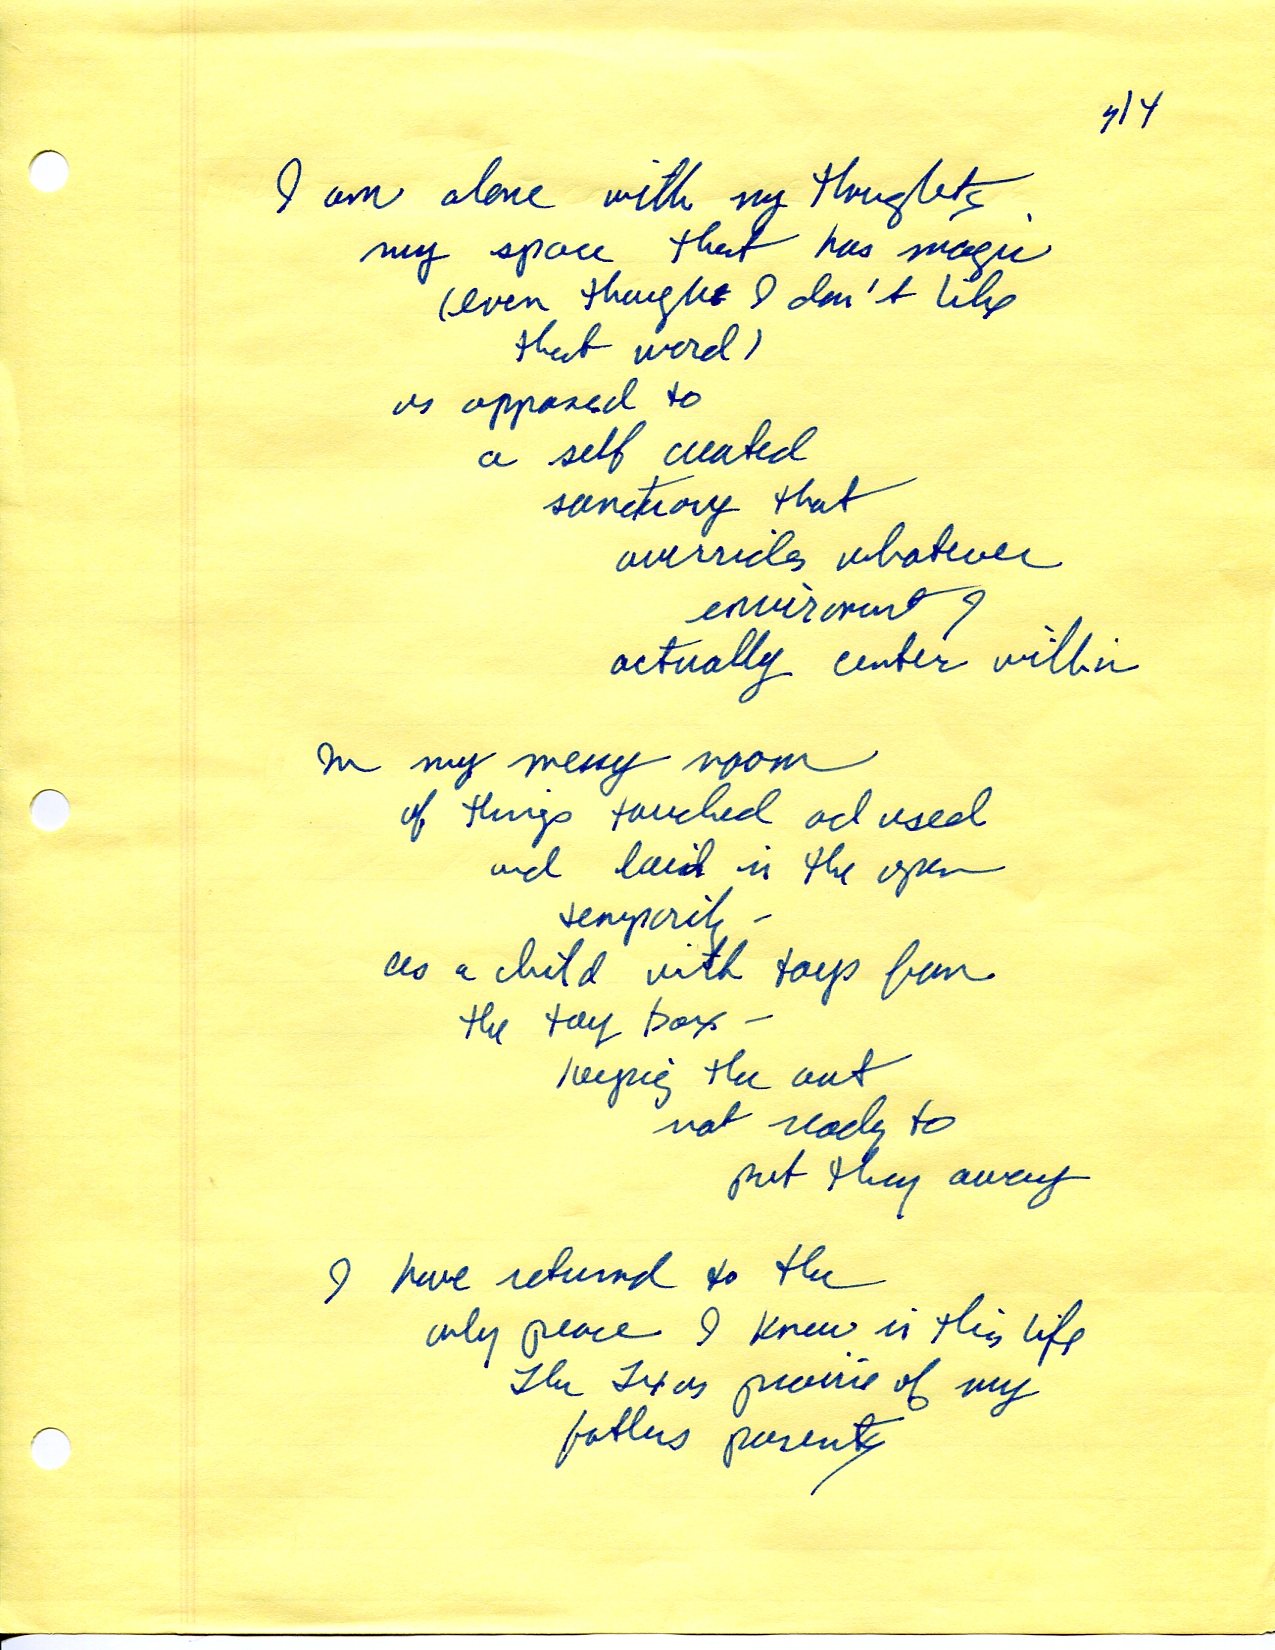 7/4
I am alone with my thoughts
my space that has magic
(even though I don't like
that word)
as opposed to
a self created
sanctuary that
overrides whatever
enviroment I
actually center within
In my messy room
of things touched and used
and laid in the open
temporily -
as a child with toys from
the toy box -
keeping the out
not ready to
put they away
I have returned to the
only peace I knew in this life
The Texas prairie of my
fathers parents